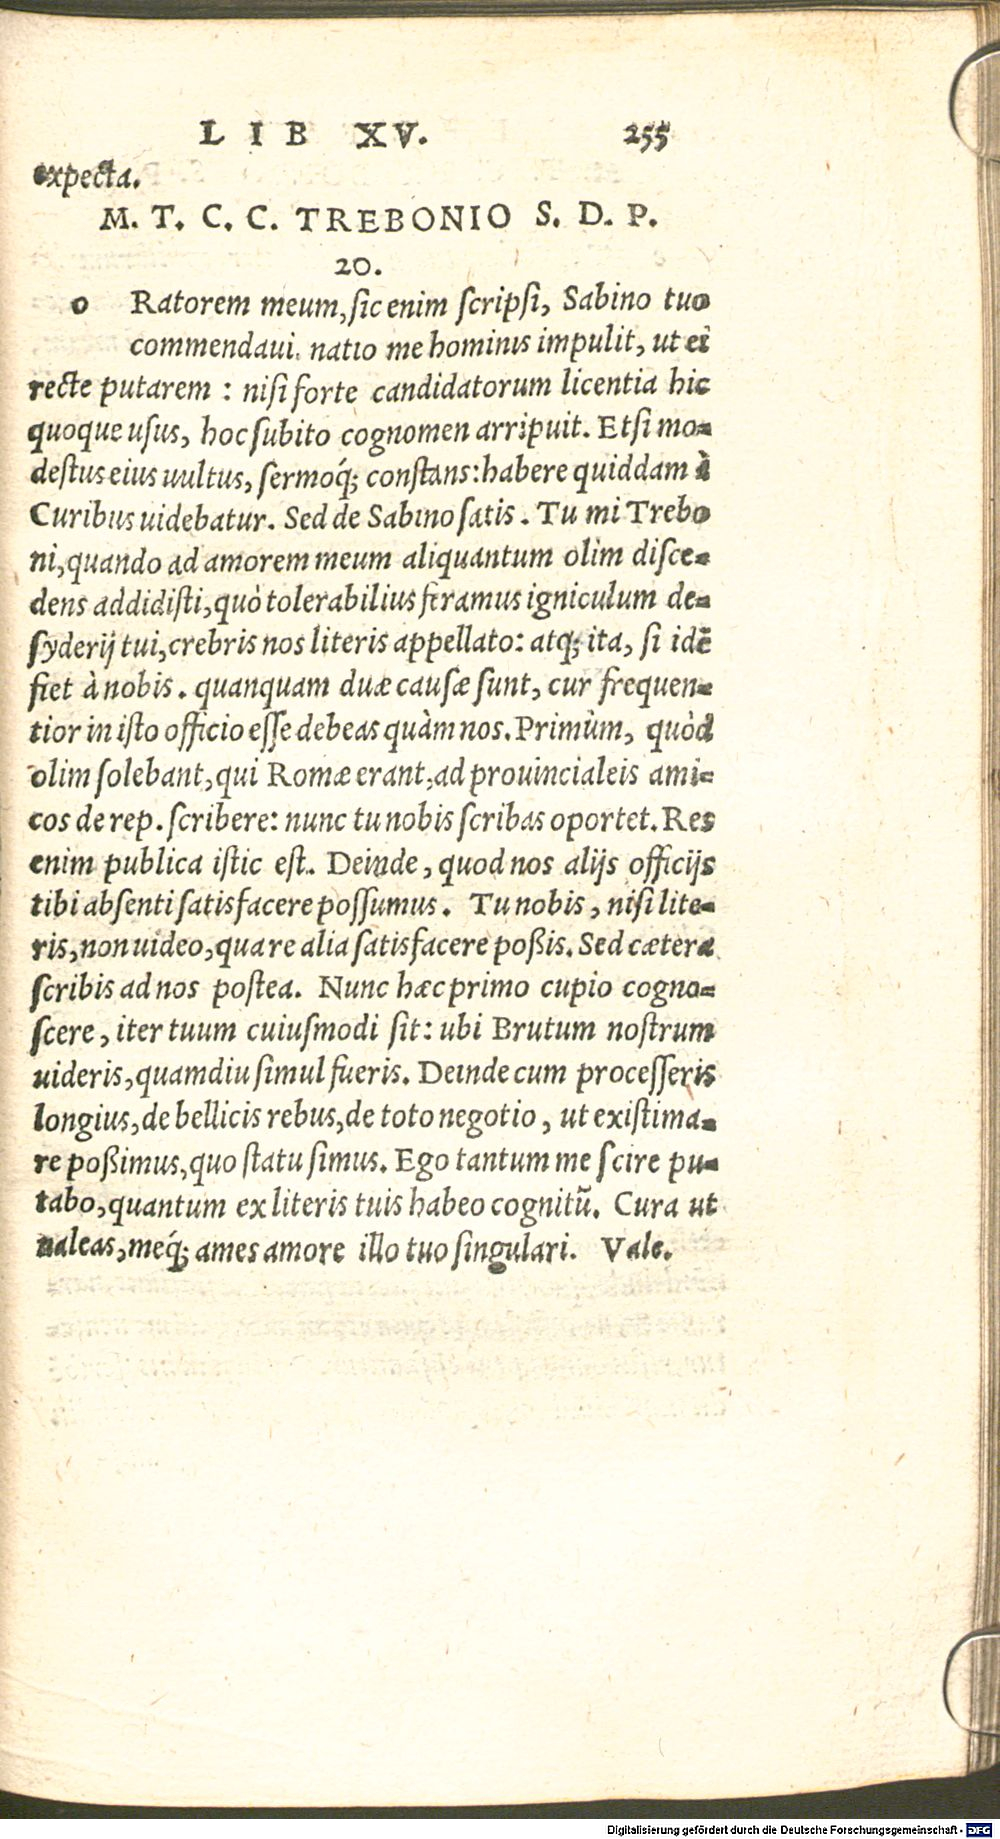 LIB XV. 255
expecta.
M. T. C. C. TREBONIO S. D. P.
20.
o Ratorem meum, sic enim scripsi, Sabino tuo
commendaui. natio me hominis impulit, ut ei
recte putarem : nisi forte candidatorum licentia hic
quoque usus, hoc subito cognomen arripuit. Etsi mo-
destus eius uultus, sermoq́; constans: habere quiddam à
Curibus uidebatur. Sed de Sabino satis. Tu mi Trebo
ni, quando ad amorem meum aliquantum olim disce-
dens addidisti, quò tolerabilius feramus igniculum de-
syderij tui, crebris nos literis appellato: atq; ita, si idē
fiet à nobis. quanquam duæ causæ sunt, cur frequen-
tior in isto officio esse debeas quàm nos. Primùm, quòd
olim solebant, qui Romæ erant, ad prouincialeis ami-
cos de rep. scribere: nunc tu nobis scribas oportet. Res
enim publica istic est. Deinde, quod nos alijs officijs
tibi absenti satisfacere possumus. Tu nobis, nisi lite-
ris, non uideo, qua re alia satisfacere poßis. Sed cætera
scribis ad nos postea. Nunc hæc primo cupio cogno-
scere, iter tuum cuiusmodi sit: ubi Brutum nostrum
uideris, quamdiu simul fueris. Deinde cum processeris
longius, de bellicis rebus, de toto negotio, ut existima-
re poßimus, quo statu simus. Ego tantum me scire pu-
tabo, quantum ex literis tuis habeo cognitū. Cura ut
ualeas, meq́; ames amore illo tuo singulari. Vale.
Digitalisierung gefördert durch die Deutsche Forschungsgemeinschaft - DFG